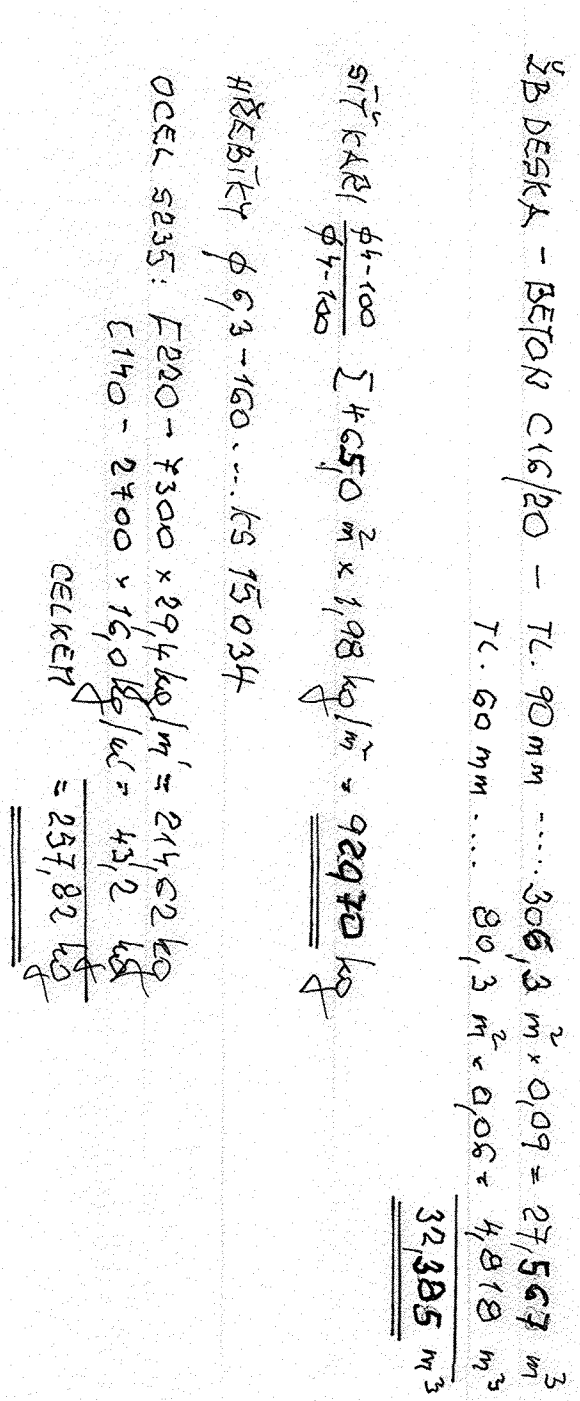 ŽB DESKA - BETON C16/20 - TL. 90 mm ..... 306,3 m² × 0,09 = 27,567 m³
TL. 60 mm .... 80,3 m² × 0,06 = 4,818 m³
32,385 m³
SÍŤ KARI ϕ4-100/ϕ4-100 Σ 465,0 m² × 1,98 kg/m² = 920,70 kg
HŘEBÍKY ϕ 6,3-160 .... KS 15034
OCEL S235: [220 - 7300 × 29,4 kg/m' = 214,62 kg
[140 - 2700 × 16,0 kg/m' = 43,2 kg
CELKEM = 257,82 kg